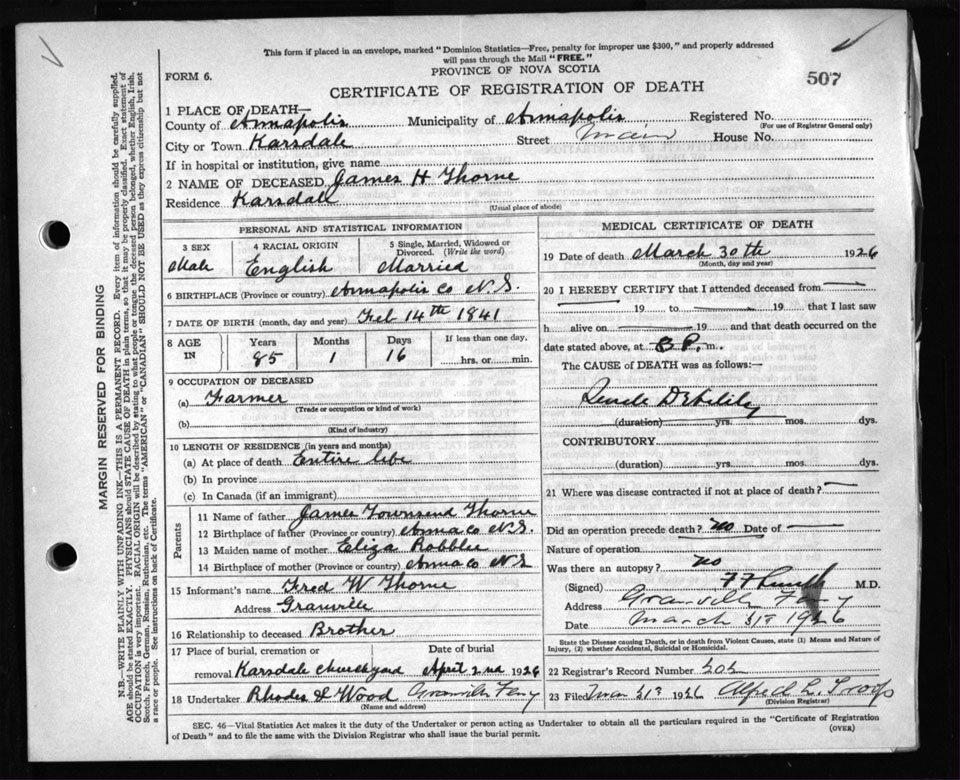 This form if placed in an envelope, marked "Dominion Statistics—Free, penalty for improper use $300," and properly addressed
will pass through the Mail "FREE."
PROVINCE OF NOVA SCOTIA
FORM 6.
507
CERTIFICATE OF REGISTRATION OF DEATH
1 PLACE OF DEATH—
County of Annapolis Municipality of Annapolis Registered No.
(For use of Registrar General only)
City or Town Karsdale Street Main House No.
If in hospital or institution, give name
2 NAME OF DECEASED James H Thorne
Residence Karsdale
(Usual place of abode)
PERSONAL AND STATISTICAL INFORMATION
3 SEX 4 RACIAL ORIGIN 5 Single, Married, Widowed or
Divorced. (Write the word)
Male English Married
6 BIRTHPLACE (Province or country) Annapolis Co N.S.
7 DATE OF BIRTH (month, day and year) Feb 14th 1841
8 AGE IN Years Months Days If less than one day,
85 1 16 hrs. or min.
9 OCCUPATION OF DECEASED
(a) Farmer
(Trade or occupation or kind of work)
(b)
(Kind of industry)
10 LENGTH OF RESIDENCE (in years and months)
(a) At place of death Entire life
(b) In province
(c) In Canada (if an immigrant)
Parents
11 Name of father James Townsend Thorne
12 Birthplace of father (Province or country) Anna co N.S.
13 Maiden name of mother Eliza
14 Birthplace of mother (Province or country) Anna co N.S
15 Informant's name Fred W Thorne
Address Granville
16 Relationship to deceased Brother
17 Place of burial, cremation or Date of burial
removal Karsdale Churchyard April 2nd 1926
18 Undertaker Rhodes & Wood Granville Ferry
(Name and address)
MEDICAL CERTIFICATE OF DEATH
19 Date of death March 30th 1926
(Month, day and year)
20 I HEREBY CERTIFY that I attended deceased from
19 to 19 that I last saw
h alive on 19 and that death occurred on
date stated above, at 8 P. m.
The CAUSE of DEATH was as follows:—
Senile Debility
(duration) yrs. mos. dys.
CONTRIBUTORY
(duration) yrs. mos. dys.
21 Where was disease contracted if not at place of death?
Did an operation precede death? no Date of
Nature of operation
Was there an autopsy? no
(Signed) M.D.
Address Granville Ferry
Date March 31st 1926
State the Disease causing Death, or in death from Violent Causes, state (1) Means and Nature of
Injury, (2) whether Accidental, Suicidal or Homicidal.
22 Registrar's Record Number
23 Filed Mar 31st 1926 Alfred L. Troop
(Division Registrar)
SEC. 46—Vital Statistics Act makes it the duty of the Undertaker or person acting as Undertaker to obtain all the particulars required in the "Certificate of Registration
of Death" and to file the same with the Division Registrar who shall issue the burial permit.
(OVER)
MARGIN RESERVED FOR BINDING
N.B.—WRITE PLAINLY WITH UNFADING INK—THIS IS A PERMANENT RECORD. Every item of information should be carefully supplied.
AGE should be stated EXACTLY. PHYSICIANS should STATE CAUSE OF DEATH in plain terms, so that it may be properly classified. Exact statement of
OCCUPATION is very important. RACIAL ORIGIN will be described by stating to what people or tongue the deceased person belonged, whether English, Irish,
Scotch, French, German, Russian, Ruthenian, etc. The terms "AMERICAN" or "CANADIAN" SHOULD NOT BE USED as they express citizenship but not
a race or people. See instructions on back of Certificate.